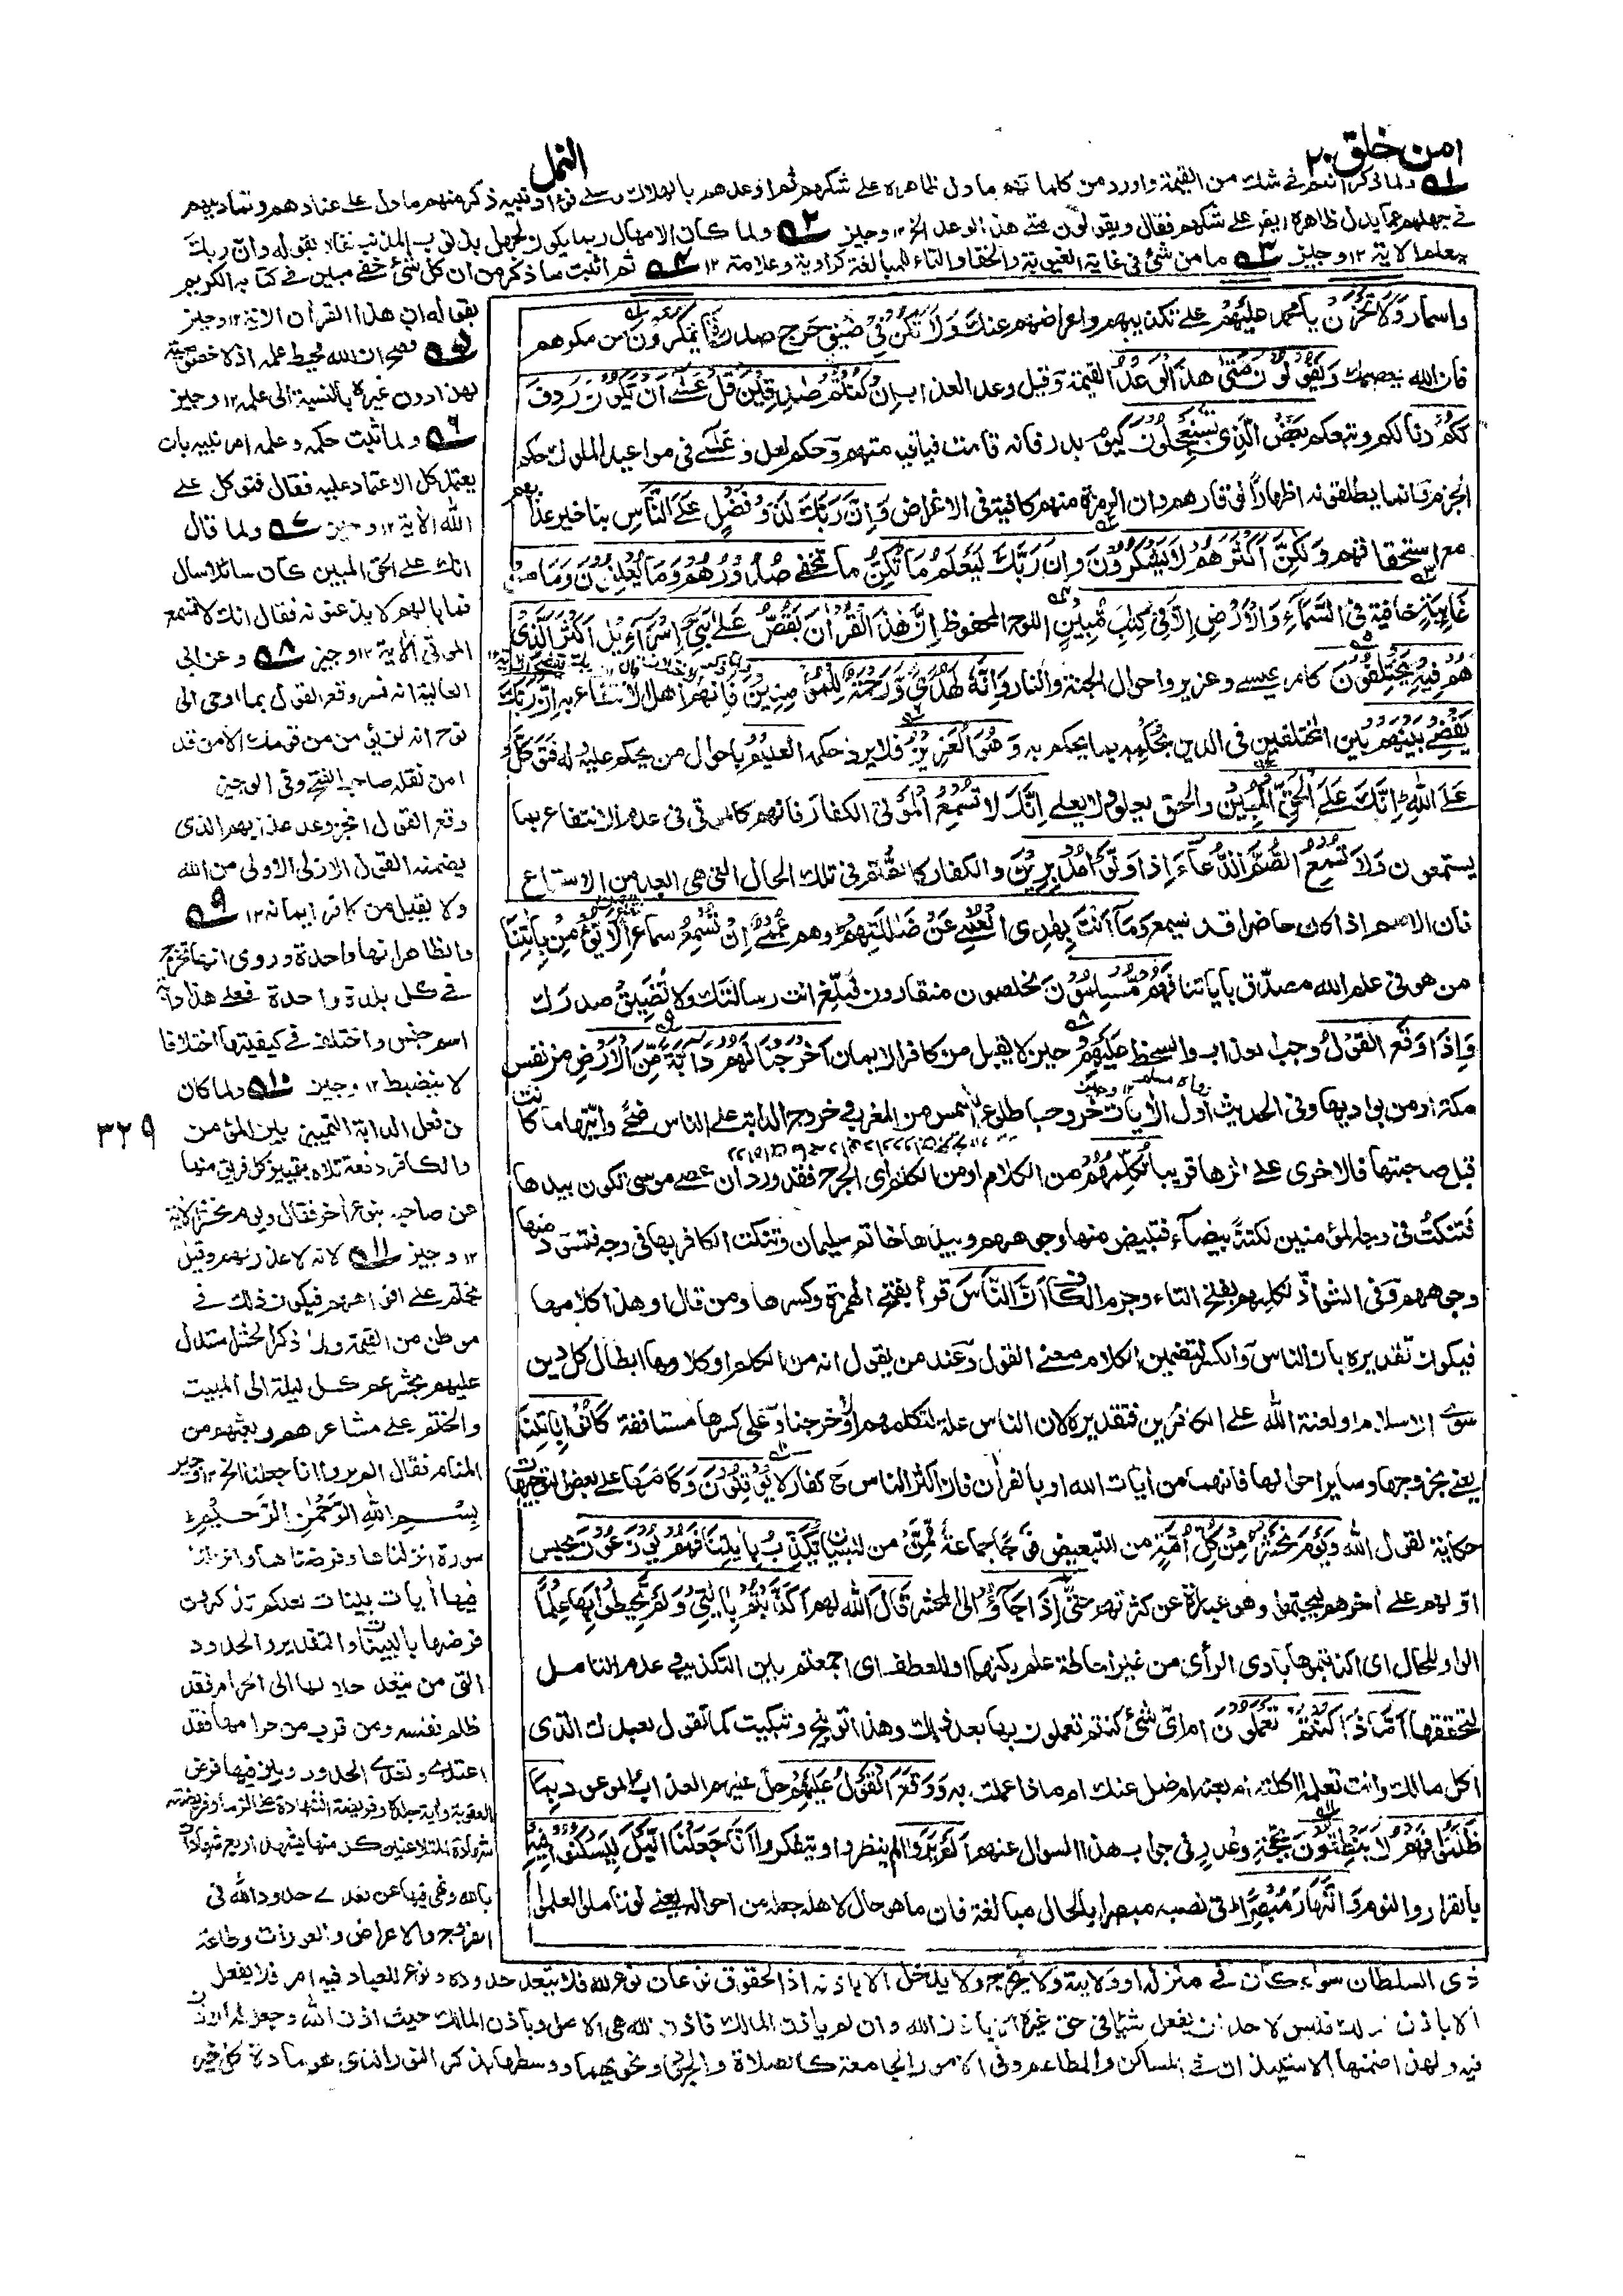 امن خلق ٢٠
النمل
في جهلهم بما يدل ظاهره ايضا على شكهم فقال ويقولون متى هذا الوعد الخ ١٢ وجيز ٥٢ ولما كان الامهال ربما يكون لجهل بذنوب المذنب نفاه بقوله وان ربك
يعلم الاية ١٢ وجيز ٥٣ ما من شئ في غاية الغيبوبة والخفا والتاء للمبالغة كراوية وعلامة ١٢ ٥٤ ثم اثبت ما ذكر من ان كل شئ خفي مبين في كتابه الكريم
واسمار وَلَا تَحْزَنْ يا محمد عَلَيْهِمْ على تكذيبهم واعراضهم عنك وَلَا تَكُنْ فِيْ ضَيْقٍ حرج صدر مِّمَّا يَمْكُرُوْنَ من مكرهم
فان الله يعصمك وَيَقُوْلُوْنَ مَتٰى هٰذَا الْوَعْدُ القيمة وقيل وعد العذاب اِنْ كُنْتُمْ صٰدِقِيْنَ قُلْ عَسٰى اَنْ يَّكُوْنَ رَدِفَ
لَكُمْ دنا لكم وتبعكم بَعْضُ الَّذِيْ تَسْتَعْجِلُوْنَ كيوم بدر فانه قامت فيه قيامتهم وحكم لعل وعسى في مواعيد الملوك حكم
الجزم فانما يطلقونه اظهارا لوقارهم وان الرمزة منهم كافية في الاغراض وَاِنَّ رَبَّكَ لَذُوْ فَضْلٍ عَلَى النَّاسِ بتاخير عذابهم
مع استحقاقهم وَلٰكِنَّ اَكْثَرَهُمْ لَا يَشْكُرُوْنَ وَاِنَّ رَبَّكَ لَيَعْلَمُ مَا تُكِنُّ ما تخفي صُدُوْرُهُمْ وَمَا يُعْلِنُوْنَ وَمَا مِنْ
غَآئِبَةٍ خافية فِى السَّمَآءِ وَالْاَرْضِ اِلَّا فِيْ كِتٰبٍ مُّبِيْنٍ اللوح المحفوظ اِنَّ هٰذَا الْقُرْاٰنَ يَقُصُّ عَلٰى بَنِيْ اِسْرَآءِيْلَ اَكْثَرَ الَّذِيْ
هُمْ فِيْهِ يَخْتَلِفُوْنَ كامر عيسى وعزير واحوال الجنة والنار وَاِنَّهٗ لَهُدًى وَّرَحْمَةٌ لِّلْمُؤْمِنِيْنَ فانهم اهل الانتفاع به اِنَّ رَبَّكَ
يَقْضِيْ بَيْنَهُمْ بين المختلفين في الدين بِحُكْمِهٖ بما يحكم به وَهُوَ الْعَزِيْزُ فلا يرد حكمه الْعَلِيْمُ باحوال من يحكم عليه وله فَتَوَكَّلْ
عَلَى اللّٰهِ اِنَّكَ عَلَى الْحَقِّ الْمُبِيْنِ والحق يعلو ولا يعلى اِنَّكَ لَا تُسْمِعُ الْمَوْتٰى الكفار فانهم كالموتى في عدم الانتفاع بما
يستمعون وَلَا تُسْمِعُ الصُّمَّ الدُّعَآءَ اِذَا وَلَّوْا مُدْبِرِيْنَ والكفار كالصم في تلك الحال التي هي ابعد من الاستماع
فان الاصم اذا كان حاضرا قد يسمع وَمَآ اَنْتَ بِهٰدِى الْعُمْيِ عَنْ ضَلٰلَتِهِمْ وهم عمى اِنْ تُسْمِعُ سماع اِلَّا مَنْ يُّؤْمِنُ بِاٰيٰتِنَا
من هو في علم الله مصدق باياتنا فَهُمْ مُّسْلِمُوْنَ مخلصون منقادون فبلّغ انت رسالتك ولا تضيق صدرك
وَاِذَا وَقَعَ الْقَوْلُ وجب العذاب والسخط عَلَيْهِمْ حين لا يقبل من كافر الايمان اَخْرَجْنَا لَهُمْ دَآبَّةً مِّنَ الْاَرْضِ من نفس
مكة او من بواديها وفي الحديث اول الايات خروجا طلوع الشمس من المغرب وخروج الدابة على الناس ضحى وايتهما ما كانت
قبل صاحبتها فالاخرى على اثرها قريبا تُكَلِّمُهُمْ من الكلام او من الكلم اى الجرح فقد ورد ان عصا موسى تكون بيدها
فتنكت في وجه المؤمنين نكتة بيضاء فتبيض منها وجوههم وبيدها خاتم سليمان وتنكت الكافر بها في وجهه فتسود منها
وجوههم وفي الشواذ تكلمهم بفتح التاء وجزم الكاف اَنَّ النَّاسَ قرأ بفتح الهمزة وكسرها ومن قال وهذا كلامها
فيكون تقديره بان الناس والكسر لتضمين الكلام معنى القول وعند من يقول انه من الكلم او كلامها ابطال كل دين
سوى الاسلام او لعنة الله على الكافرين فتقديره لان الناس علة لتكلمهم او اخرجنا وعلى كسرها مستانفة كَانُوْا بِاٰيٰتِنَا
يعنى بخروجها وساير احوالها فانهما من ايات الله او بالقرآن فان اكثر الناس ح كفار لَا يُوْقِنُوْنَ وكلامها على بعض التوجيهات
حكاية لقول الله وَيَوْمَ نَحْشُرُ مِنْ كُلِّ اُمَّةٍ من للتبعيض فَوْجًا جماعة مِّمَّنْ من للتبيان يُّكَذِّبُ بِاٰيٰتِنَا فَهُمْ يُوْزَعُوْنَ يحبس
اولهم على اخرهم ليجتمعوا وهو عبارة عن كثرتهم حَتّٰى اِذَا جَآءُوْ الى المحشر قَالَ الله لهم اَكَذَّبْتُمْ بِاٰيٰتِيْ وَلَمْ تُحِيْطُوْا بِهَا عِلْمًا
الواو للحال اى اكذبتم بها بادى الرأى من غير احاطة علم بكنهها او للعطف اى اجمعتم بين التكذيب وعدم التامل
لتحققها اَمَّاذَا كُنْتُمْ تَعْمَلُوْنَ ام اىّ شئ كنتم تعملون بها بعد ذلك وهذا توبيخ وتبكيت كما تقول لعبدك الذى
اكل مالك وانت تعلم أاكلته ام بعته ام ضل عنك ام ماذا عملت به وَوَقَعَ الْقَوْلُ عَلَيْهِمْ حل عليهم العذاب الموعود بِمَا
ظَلَمُوْا فَهُمْ لَا يَنْطِقُوْنَ بحجة وعذر في جواب هذا السوال عنهم اَلَمْ يَرَوْا الم ينظروا ويتفكروا اَنَّا جَعَلْنَا الَّيْلَ لِيَسْكُنُوْا فِيْهِ
بالقرار والنوم وَالنَّهَارَ مُبْصِرًا وفي نصبه مبصرا بالحال مبالغة فان ما هو حال لاهله جعله من احواله يعنى
بقوله ان هذا القرآن الاية ١٢ وجيز
لهذا دون غيره بالنسبة الى علمه ١٢ وجيز
٥٦ ولما ثبت حكمه وعلمه امر نبيه بان
يعتمد كل الاعتماد عليه فقال فتوكل على
الله الاية ١٢ وجيز ٥٧ ولما قال
انك على الحق المبين كان سائلا سال
فما بالهم لا يذعنونه فقال انك لا تسمع
الموتى الاية ١٢ وجيز ٥٨ وعن ابى
العالية انه فسر وقع القول بما اوحى الى
نوح انه لن يؤمن من قومك الا من قد
امن نقله صاحب الفتح وفي الوجيز
وقع القول انجز وعد عذابهم الذى
يضمنه القول الازلى الاولى من الله
ولا يقبل من كافر ايمانه ١٢ ٥٩
والظاهر انها واحدة وروى انها تخرج
في كل بلدة واحدة فعلى هذا دابة
اسم جنس واختلف في كيفيتها اختلافا
لا ينضبط ١٢ وجيز ٥١٠ ولما كان
من فعل الدابة التمييز بين المؤمن
والكافر دفعة تلاه بتمييز كل فريق منها
عن صاحبه بنوع اخر فقال ويوم نحشر الاية
١٢ وجيز ٥١١ لانه لا عذر لهم وقيل
يختم على افواههم فيكون ذلك في
موطن من القيمة ولما ذكر الحشر استدل
عليهم بحشرهم كل ليلة الى المبيت
والختم على مشاعرهم وبعثهم من
المنام فقال الم يروا انا جعلنا الخ ١٢ وجيز
بسم الله الرحمن الرحيم
سورة انزلناها وفرضناها وانزلنا
فيها آيات بينات لعلكم تذكرون
فرضها بالبينات والتقدير والحدود
التى من يتعد حدودها الى الحرام فقد
ظلم نفسه ومن قرب من حرامها فقد
اعتدى وتعدى الحدود وبين فيها فرض
بالله ونهى فيها عن تعدى حدود الله في
الفروج والاعراض والعورات وطاعة
٣٢٩
ذى السلطان سواء كان في منزله او ولايته ولا يخرج ولا يدخل الا باذنه اذ الحقوق نوعان نوع لله فلا يتعد حدوده ونوع للعباد فيه امر فلا يفعل
فيه ولهذا ضمنها الاستيذان في المساكن والمطاعم وفي الامور الجامعة كالصلاة